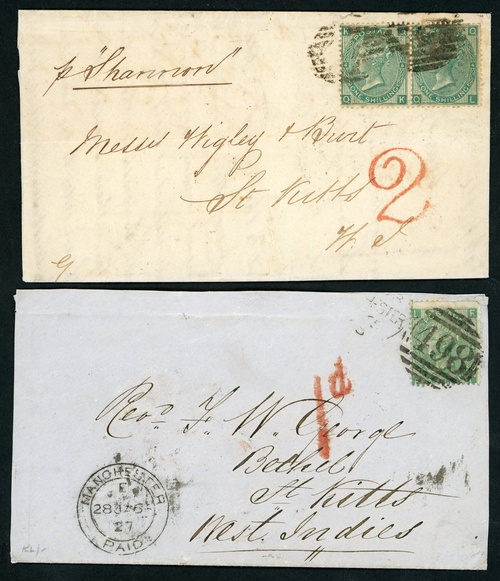 K Q
ONE SHILLING ONE SHILLING
Q K Q L
p "Shannon"
Messrs Wigley & Burt
St Kitts
W. I
2
498
1d
Revd F. W. George
Bethel
St Kitts
West Indies
MANCHESTER
27
PAID